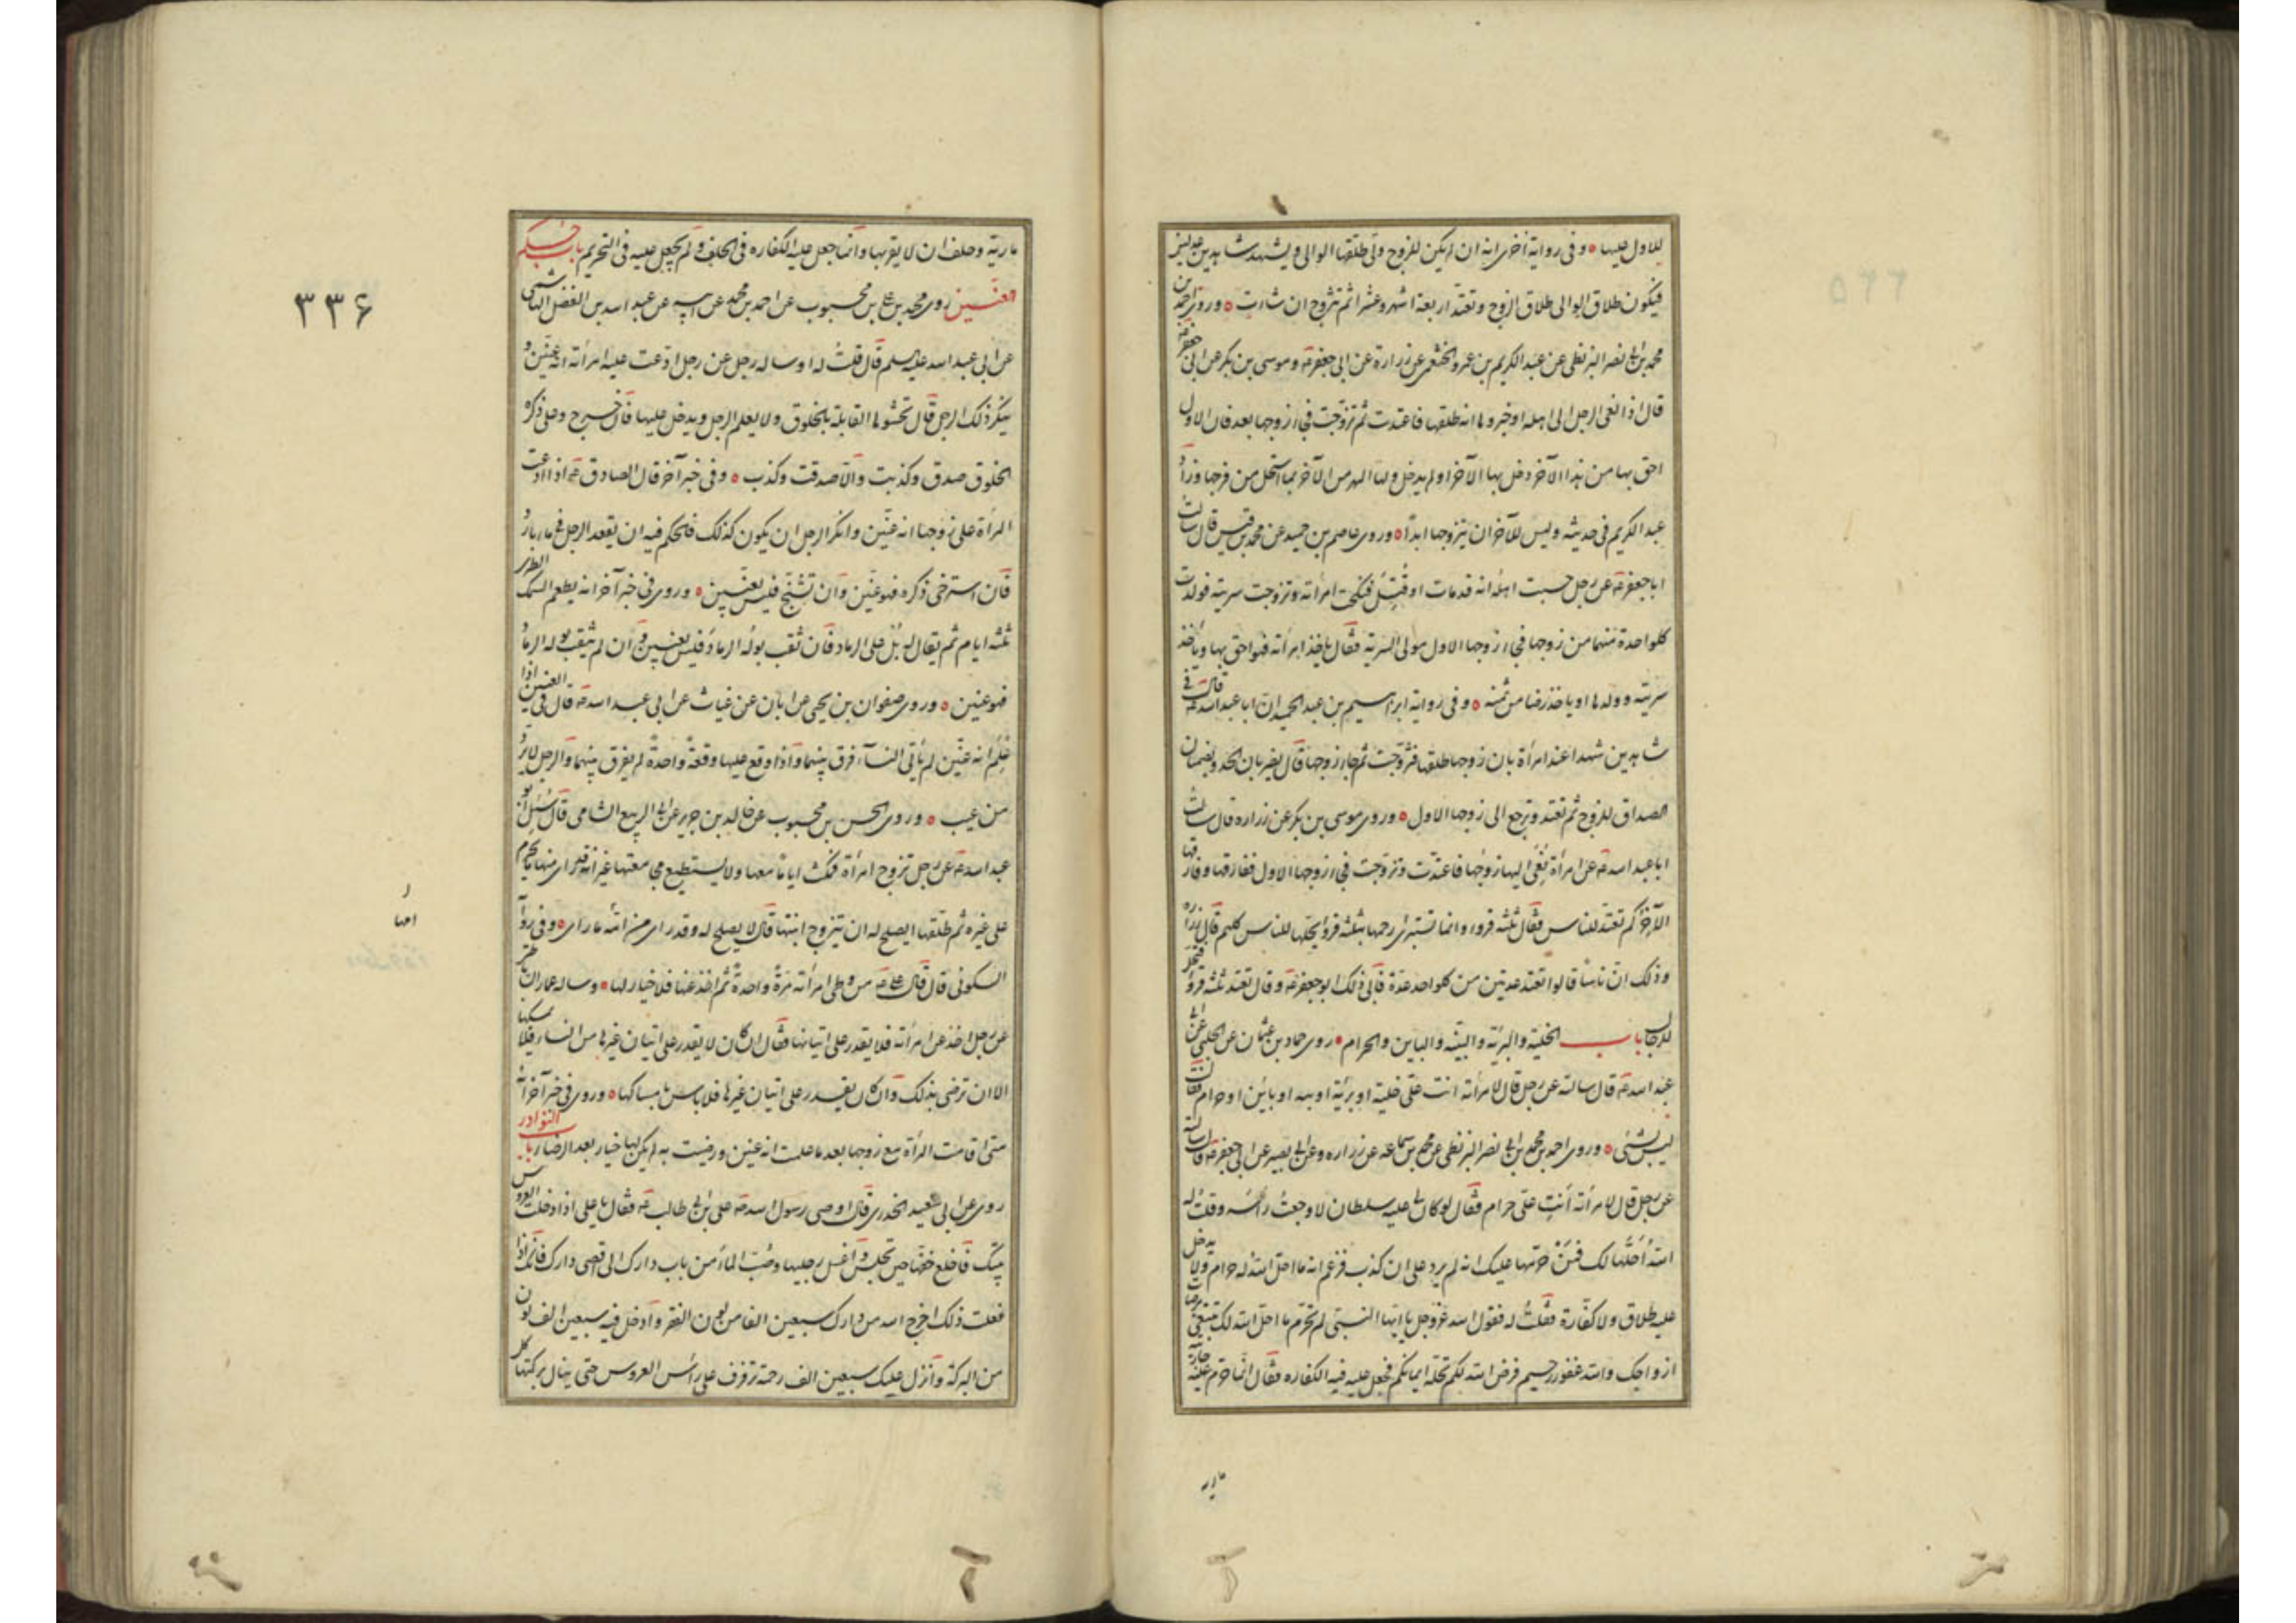 للاول عليها وفى رواية اخرى انه ان لم يكن للزوج ولى طلقها الوالى ويشهد شاهدين عدلين
فيكون طلاق الوالى طلاق الزوج وتعتد اربعة اشهر وعشرا ثم تتزوج ان شاءت وروى احمد بن
محمد بن ابى نصر البزنطى عن عبد الكريم بن عمرو الخثعمى عن زرارة عن ابى جعفر ع وموسى بن بكر عن ابى جعفر ع
قال اذا نعى الرجل الى اهله او خبروها انه طلقها فاعتدت ثم تزوجت فجاء زوجها بعد فان الاول
احق بها من هذا الآخر دخل بها الآخر او لم يدخل ولها المهر من الآخر بما استحل من فرجها وزاد
عبد الكريم فى حديثه وليس للآخر ان يتزوجها ابدا وروى عاصم بن حميد عن محمد بن قيس قال سالت
ابا جعفر ع عن رجل حسبت اهله انه قد مات او قتل فنكحت امرأته وتزوجت سريته فولدت
كلواحدة منهما من زوجها فجاء زوجها الاول مولى السرية فقال ياخذ امرأته فهو احق بها وياخذ
سريته وولدها او ياخذ رضا من ثمنه وفى رواية ابراهيم بن عبد الحميد ان ابا عبد الله ع قال فى
شاهدين شهدا عند امرأة بان زوجها طلقها فتزوجت ثم جاء زوجها قال يضربان الحد ويضمنان
الصداق للزوج ثم تعتد وترجع الى زوجها الاول وروى موسى بن بكر عن زرارة قال سالت
ابا عبد الله ع عن امرأة نعى اليها زوجها فاعتدت وتزوجت فجاء زوجها الاول ففارقها وفارقها
الآخر كم تعتد للناس فقال ثلثة قروء وانما تستبرئ رحمها بثلثة قروء يحلها للناس كلهم قال زرارة
وذلك ان ناسا قالوا تعتد عدتين من كلواحد عدة فابى ذلك ابو جعفر ع وقال تعتد ثلثة قروء فتحل
للرجال باب الخلية والبرية والبتة والباين والحرام روى حماد بن عثمان عن الحلبى عن ابى
عبد الله ع قال سالته عن رجل قال لامرأته انت على خلية او برية او بتة او بائن او حرام فقال
ليس بشئ وروى احمد بن محمد بن ابى نصر البزنطى عن محمد بن سماعه عن زراره وعن ابى بصير عن ابى جعفر ع قال سالته
عن رجل قال لامرأته انت على حرام فقال لو كان لى عليه سلطان لاوجعت رأسه وقلت له
الله احلها لك فمن حرمها عليك انه لم يزد على ان كذب فزعم انه ما احل الله له حرام ولا يدخل
عليه طلاق ولا كفارة فقلت له فقول الله عز وجل يا ايها النبى لم تحرم ما احل الله لك تبتغى مرضات
ازواجك والله غفور رحيم فرض الله لكم تحلة ايمانكم فجعل عليه فيه الكفاره فقال انما حرم عليه جارية
مارية
مارية وحلف ان لا يقربها وانما جعل عليه الكفاره فى الحلف ولم يجعل عليه فى التحريم باب حكم
العنين روى محمد بن على بن محبوب عن احمد بن محمد عن ابيه عن عبد الله بن الفضل الهاشمى
عن ابى عبد الله عليه السلم قال قلت له او ساله رجل عن رجل ادعت عليه امرأته انه عنين و
ينكر ذلك الرجل قال تحشوها القابلة بالخلوق ولا يعلم الرجل ويدخل عليها فان خرج وعلى ذكره
الخلوق صدق وكذبت والا صدقت وكذب وفى خبر آخر قال الصادق ع اذا ادعت
المرأة على زوجها انه عنين وانكر الرجل ان يكون كذلك فالحكم فيه ان يقعد الرجل فى ماء بارد
فان استرخى ذكره فهو عنين وان تشنج فليس بعنين وروى فى خبر آخر انه يطعم السمك الطرى
ثلثه ايام ثم يقال له بل على الرماد فان ثقب بوله الرماد فليس بعنين وان لم يثقب بوله الرماد
فهو عنين وروى صفوان بن يحيى عن ابان عن غياث عن ابى عبد الله ع قال فى العنين اذا
علم انه عنين لم يأتى النساء فرق بينهما واذا وقع عليها وقعة واحدة لم يفرق بينهما والرجل لا يرد
من عيب وروى الحسن بن محبوب عن خالد بن جرير عن ابى الربيع الشامى قال سئل ابو
عبد الله ع عن رجل تزوج امرأة فمكث اياما معها ولا يستطيع مجامعتها غير انه قد راى منها ما يحرم
على غيره ثم طلقها ايصلح له ان يتزوج ابنتها قال لا يصلح له وقد راى من امها ما راى وفى رواية
السكونى قال قال على ع من وطى امرأته مرة واحدة ثم اخذ عنها فلا خيار لها وساله عمار
عن رجل اخذ عن امرأته فلا يقدر على اتيانها فقال ان كان لا يقدر على اتيان غيرها من النساء فلا يمسكها
الا ان ترضى بذلك وان كان يقدر على اتيان غيرها فلا باس بامساكها وروى فى خبر آخر انه
متى اقامت المرأة مع زوجها بعد ما علمت انه عنين ورضيت به لم يكن لها خيار بعد الرضا باب النوادر
روى عن ابى سعيد الخدرى قال اوصى رسول الله ص على بن ابى طالب ع فقال يا على اذا دخلت العروس
بيتك فاخلع خفها حين تجلس واغسل رجليها وصب الماء من باب دارك الى اقصى دارك فانك اذا
فعلت ذلك اخرج الله من دارك سبعين الفا من لون الفقر وادخل فيه سبعين الف لون
من البركة وانزل عليك سبعين الف رحمة ترفرف على رأس العروس حتى ينال بركتها كل
٣٣۶